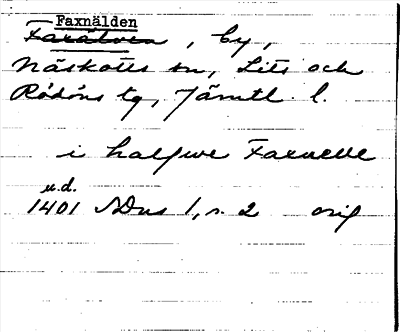 Faxnälden
Faxälven, by,
Näskotts sn, Lits och
Rödöns tg, Jämtl. l.
i halfwe Faxnelle
u.d.
1401 NDns 1, n. 2 orig